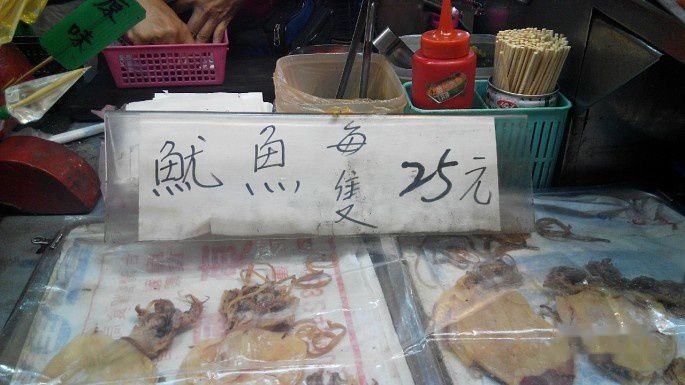 原味
魷魚每隻25元